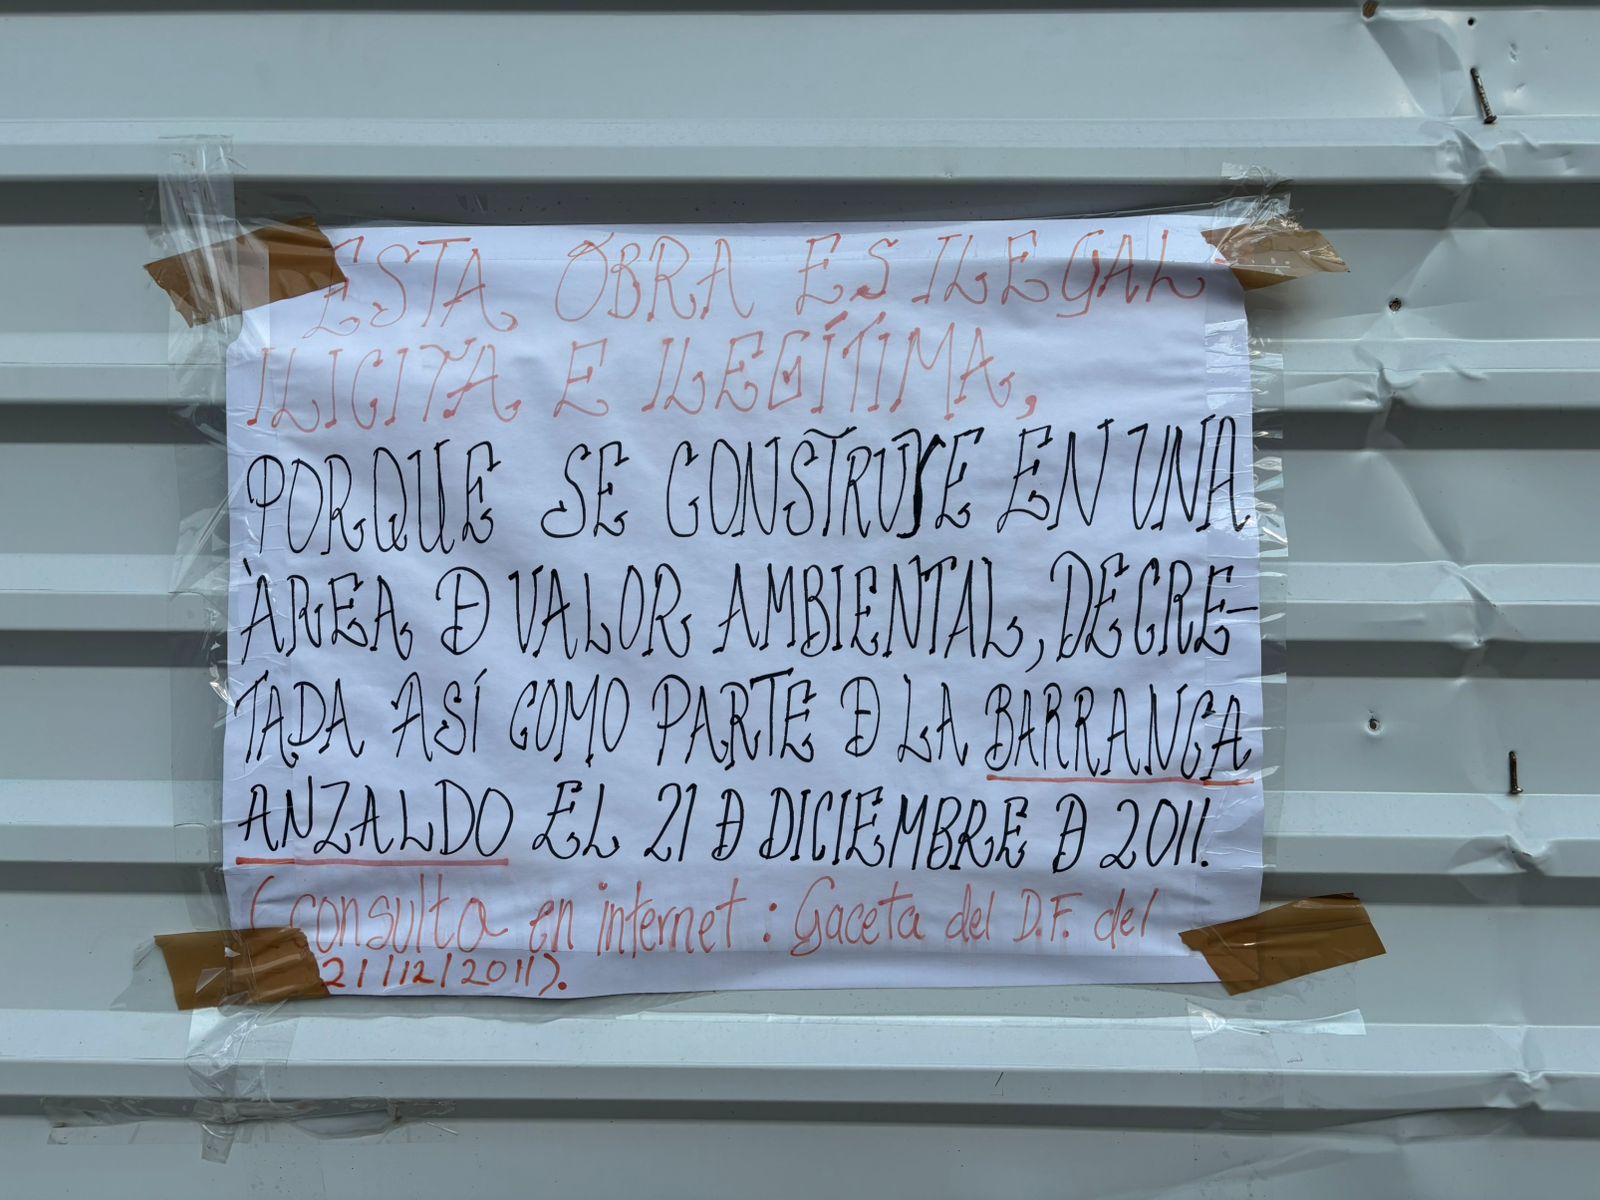 ESTA OBRA ES ILEGAL
ILICITA E ILEGÍTIMA,
PORQUE SE CONSTRUYE EN UNA
ÁREA D VALOR AMBIENTAL, DECRE-
TADA ASÍ COMO PARTE D LA BARRANCA
ANZALDO EL 21 D DICIEMBRE D 2011.
(consulta en internet: Gaceta del D.F. del
21/12/2011).